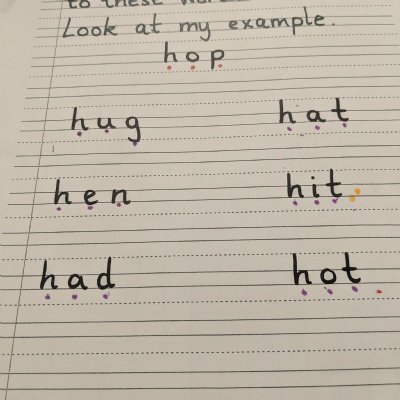 to these
Look at my example.
hop
hug hat
hen hit
had hot